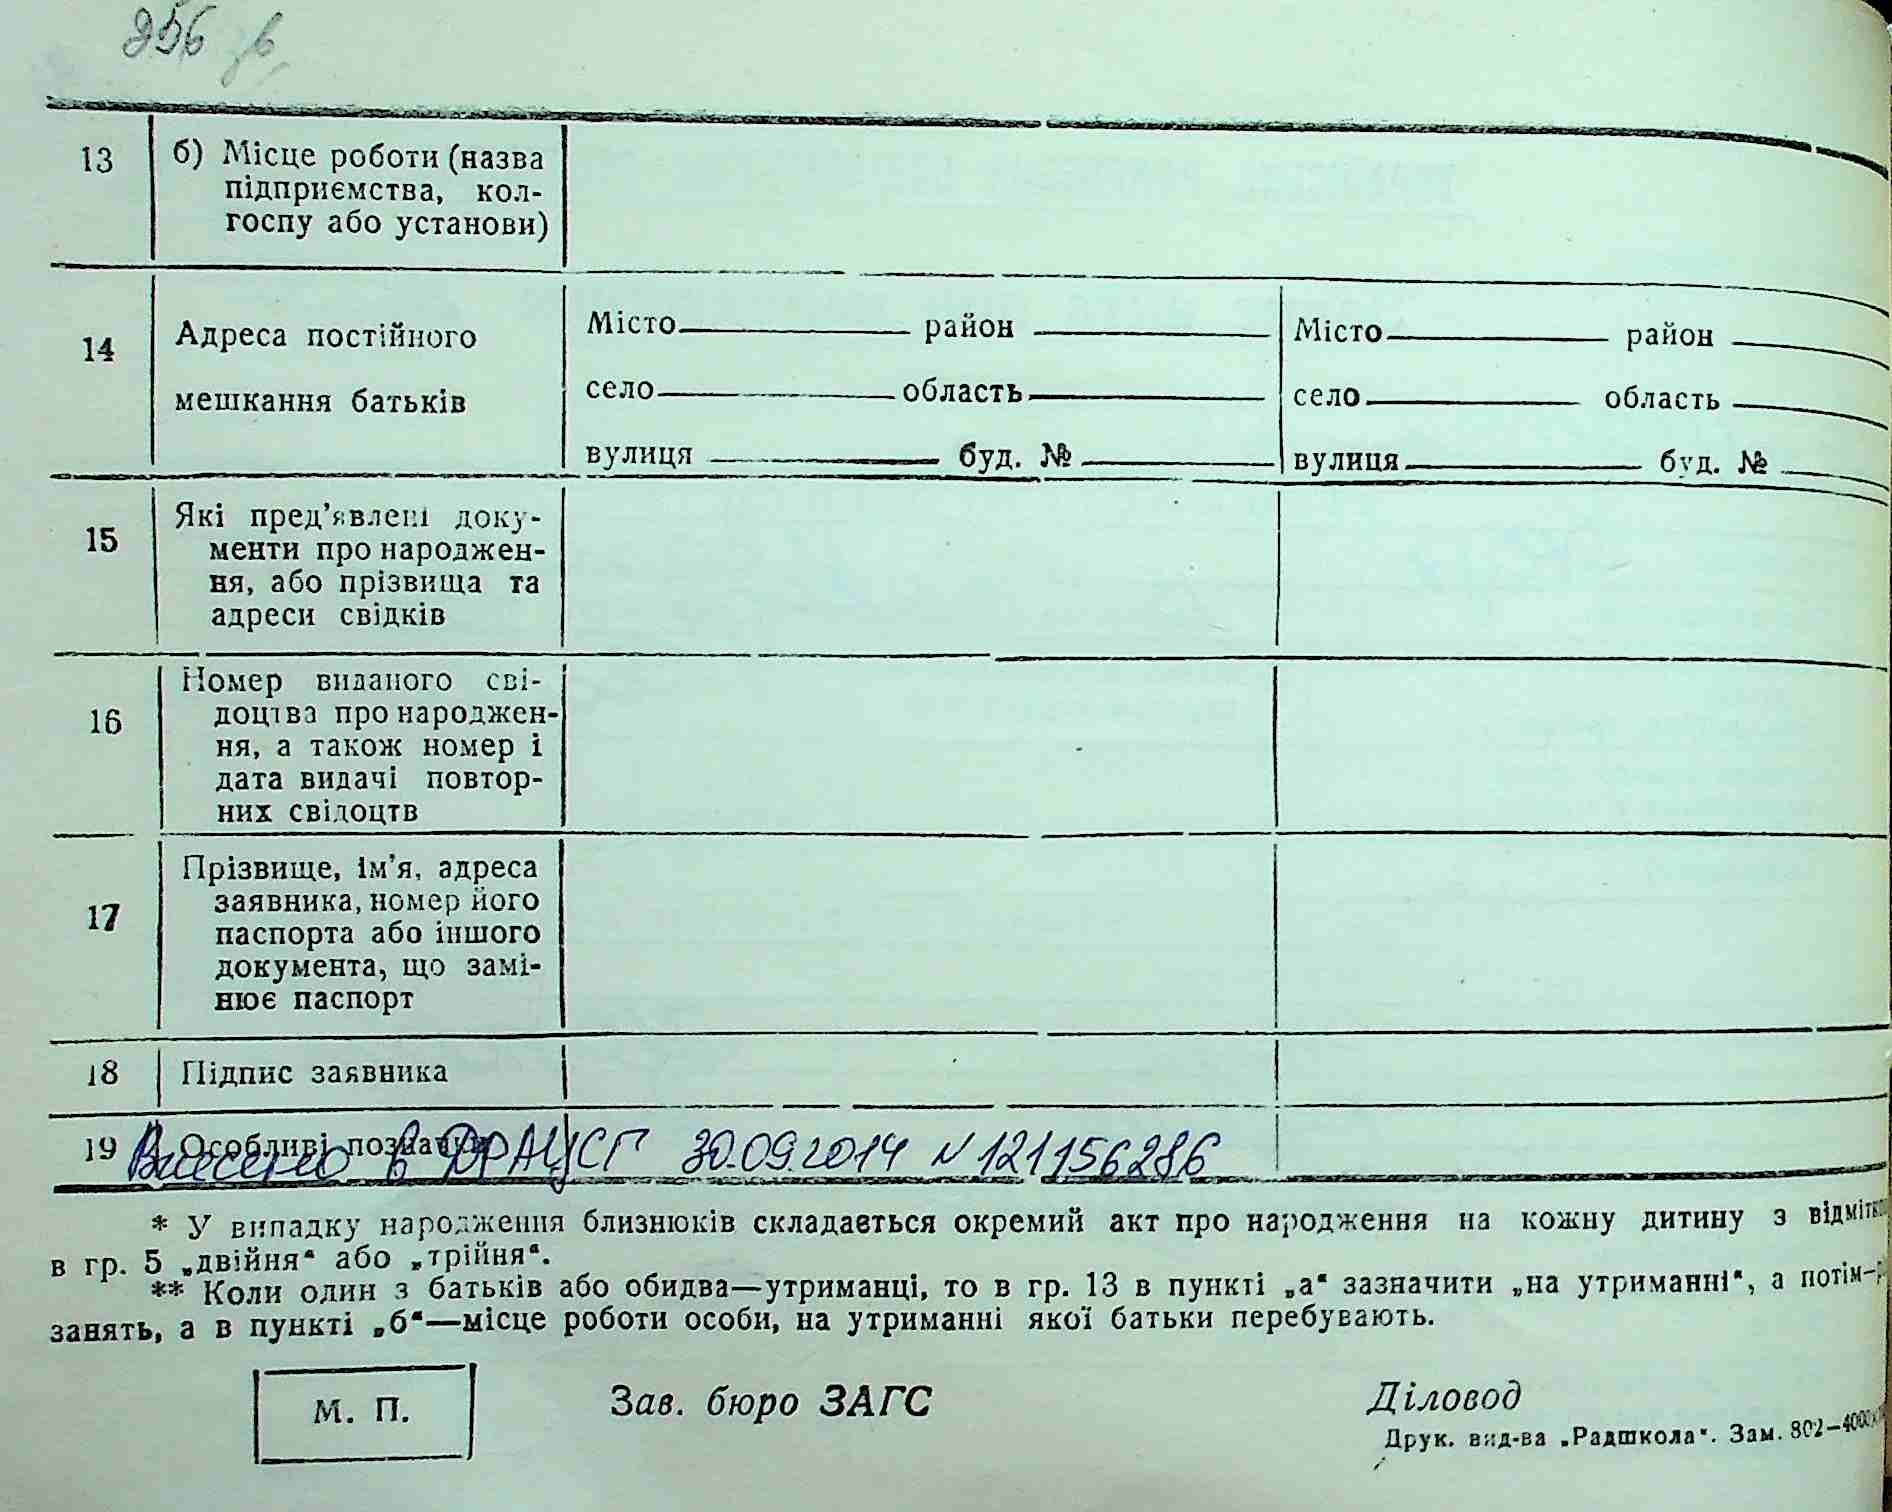 256 зв.
13 б) Місце роботи (назва
підприємства, кол-
госпу або установи)
14 Адреса постійного
мешкання батьків
Місто район
село область
вулиця буд. №
Місто район
село область
вулиця буд. №
15 Які пред’явлені доку-
менти про народжен-
ня, або прізвища та
адреси свідків
16 Номер виданого сві-
доцтва про народжен-
ня, а також номер і
дата видачі повтор-
них свідоцтв
17 Прізвище, ім’я, адреса
заявника, номер його
паспорта або іншого
документа, що замі-
нює паспорт
18 Підпис заявника
19 Особливі познач
Внесено в ДРАЦСГ 30.09.2014 N 121156286
* У випадку народження близнюків складається окремий акт про народження на кожну дитину з відмітко
в гр. 5 „двійня“ або „трійня“.
** Коли один з батьків або обидва—утриманці, то в гр. 13 в пункті „а“ зазначити „на утриманні“, а потім—рі
занять, а в пункті „б“—місце роботи особи, на утриманні якої батьки перебувають.
М. П.
Зав. бюро ЗАГС
Діловод
Друк. вид-ва „Радшкола“. Зам. 802—4000